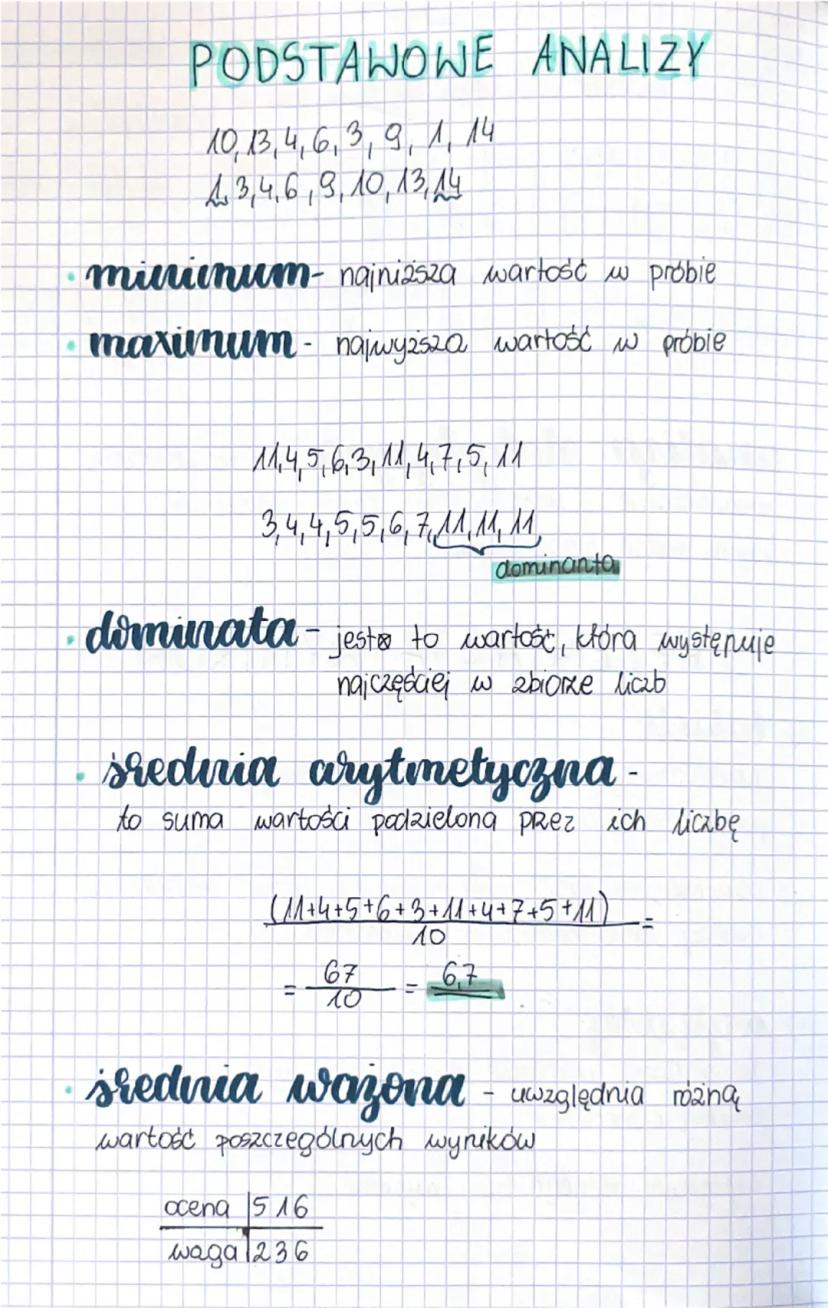 PODSTAWOWE ANALIZY
10, 13, 4, 6, 3, 9, 1, 14
1, 3, 4, 6, 9, 10, 13, 14
• minimum - najniższa wartość w próbie
• maximum - najwyższa wartość w próbie
11, 4, 5, 6, 3, 11, 4, 7, 5, 11
3, 4, 4, 5, 5, 6, 7, 11, 11, 11,
dominanta
• dominata - jest to wartość, która występuje
najczęściej w zbiorze liczb
• średnia arytmetyczna -
to suma wartości podzielona przez ich liczbę
(11+4+5+6+3+11+4+7+5+11) =
10
= 67 = 6,7
10
• średnia ważona - uwzględnia różną
wartość poszczególnych wyników
ocena | 5 1 6
waga | 2 3 6